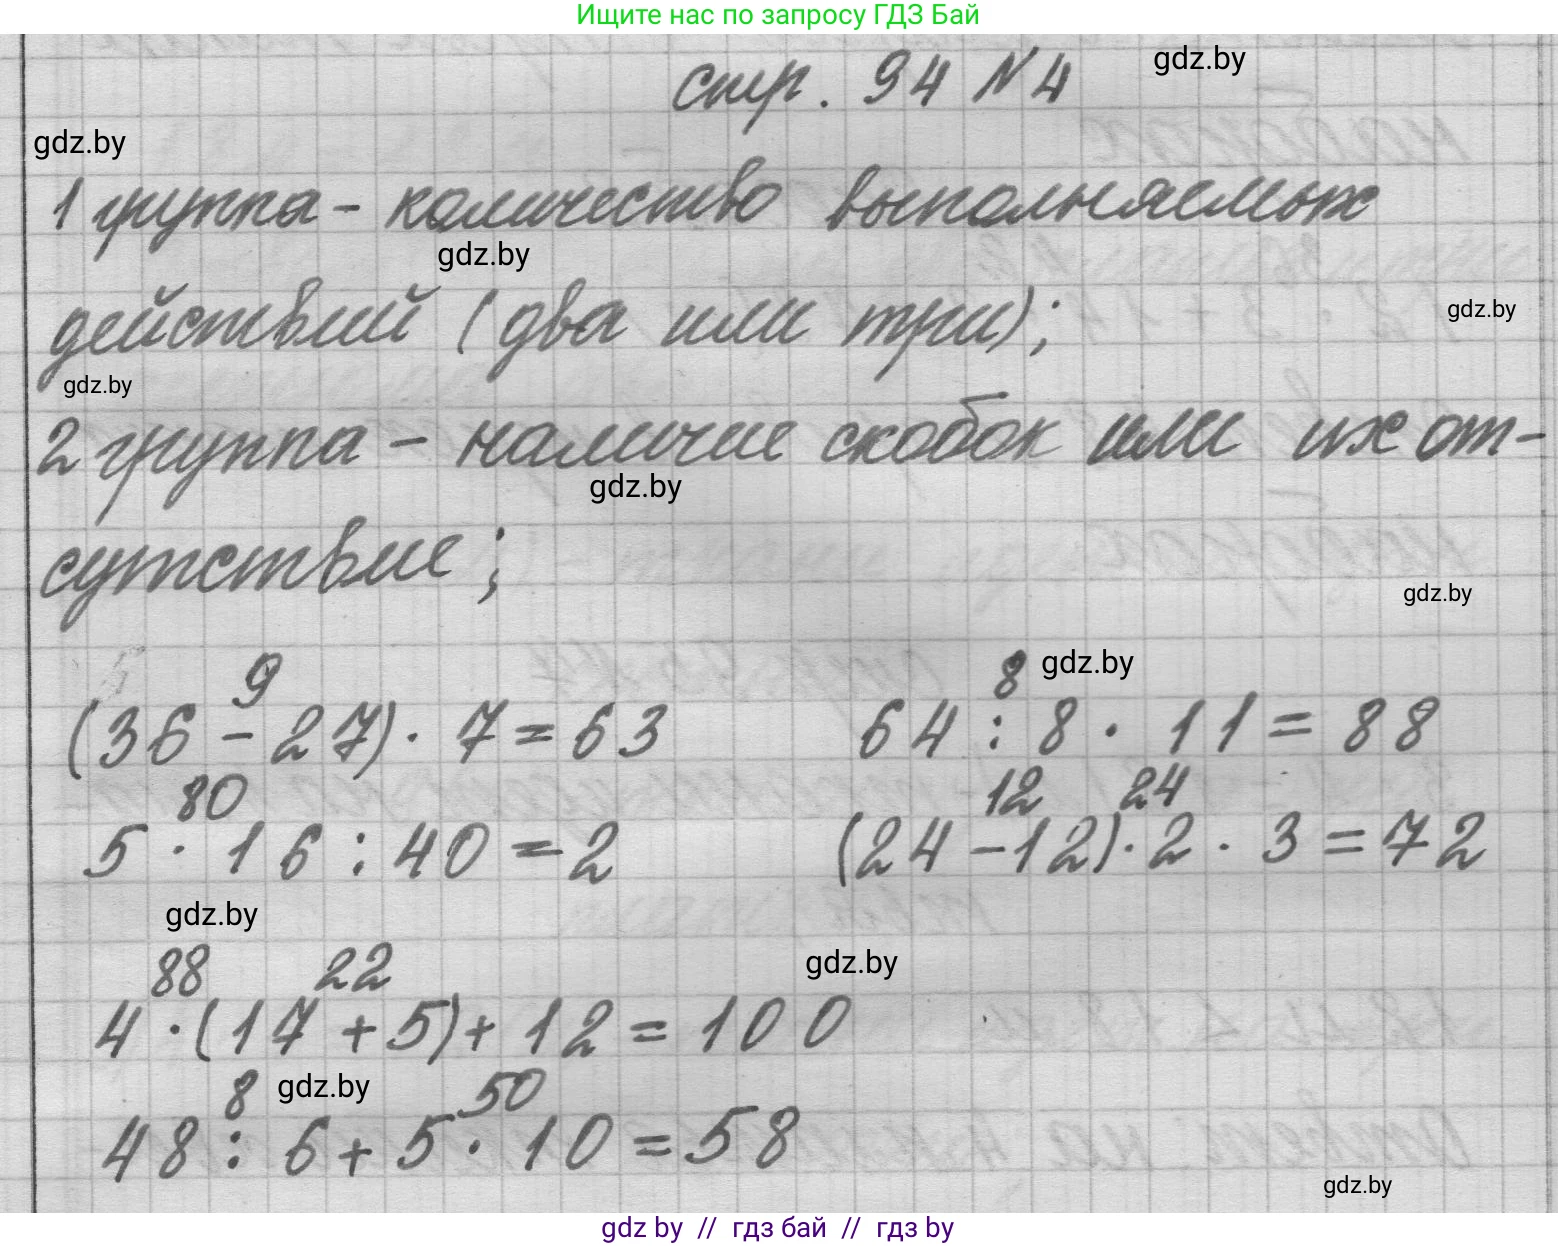 Ищите нас по запросу ГДЗ Бай
стр. 94 N 4
gdz.by
gdz.by
1 группа - количество выполняемых
gdz.by
действий (два или три);
gdz.by
gdz.by
2 группа - наличие скобок или их от-
gdz.by
сутствие;
gdz.by
9
(36 - 27) · 7 = 63
8
gdz.by
64 : 8 · 11 = 88
80
5 · 16 : 40 = 2
12 24
(24 - 12) · 2 · 3 = 72
gdz.by
gdz.by
88 22
4 · (17 + 5) + 12 = 100
8 gdz.by 50
48 : 6 + 5 · 10 = 58
gdz.by
gdz by // гдз бай // гдз by